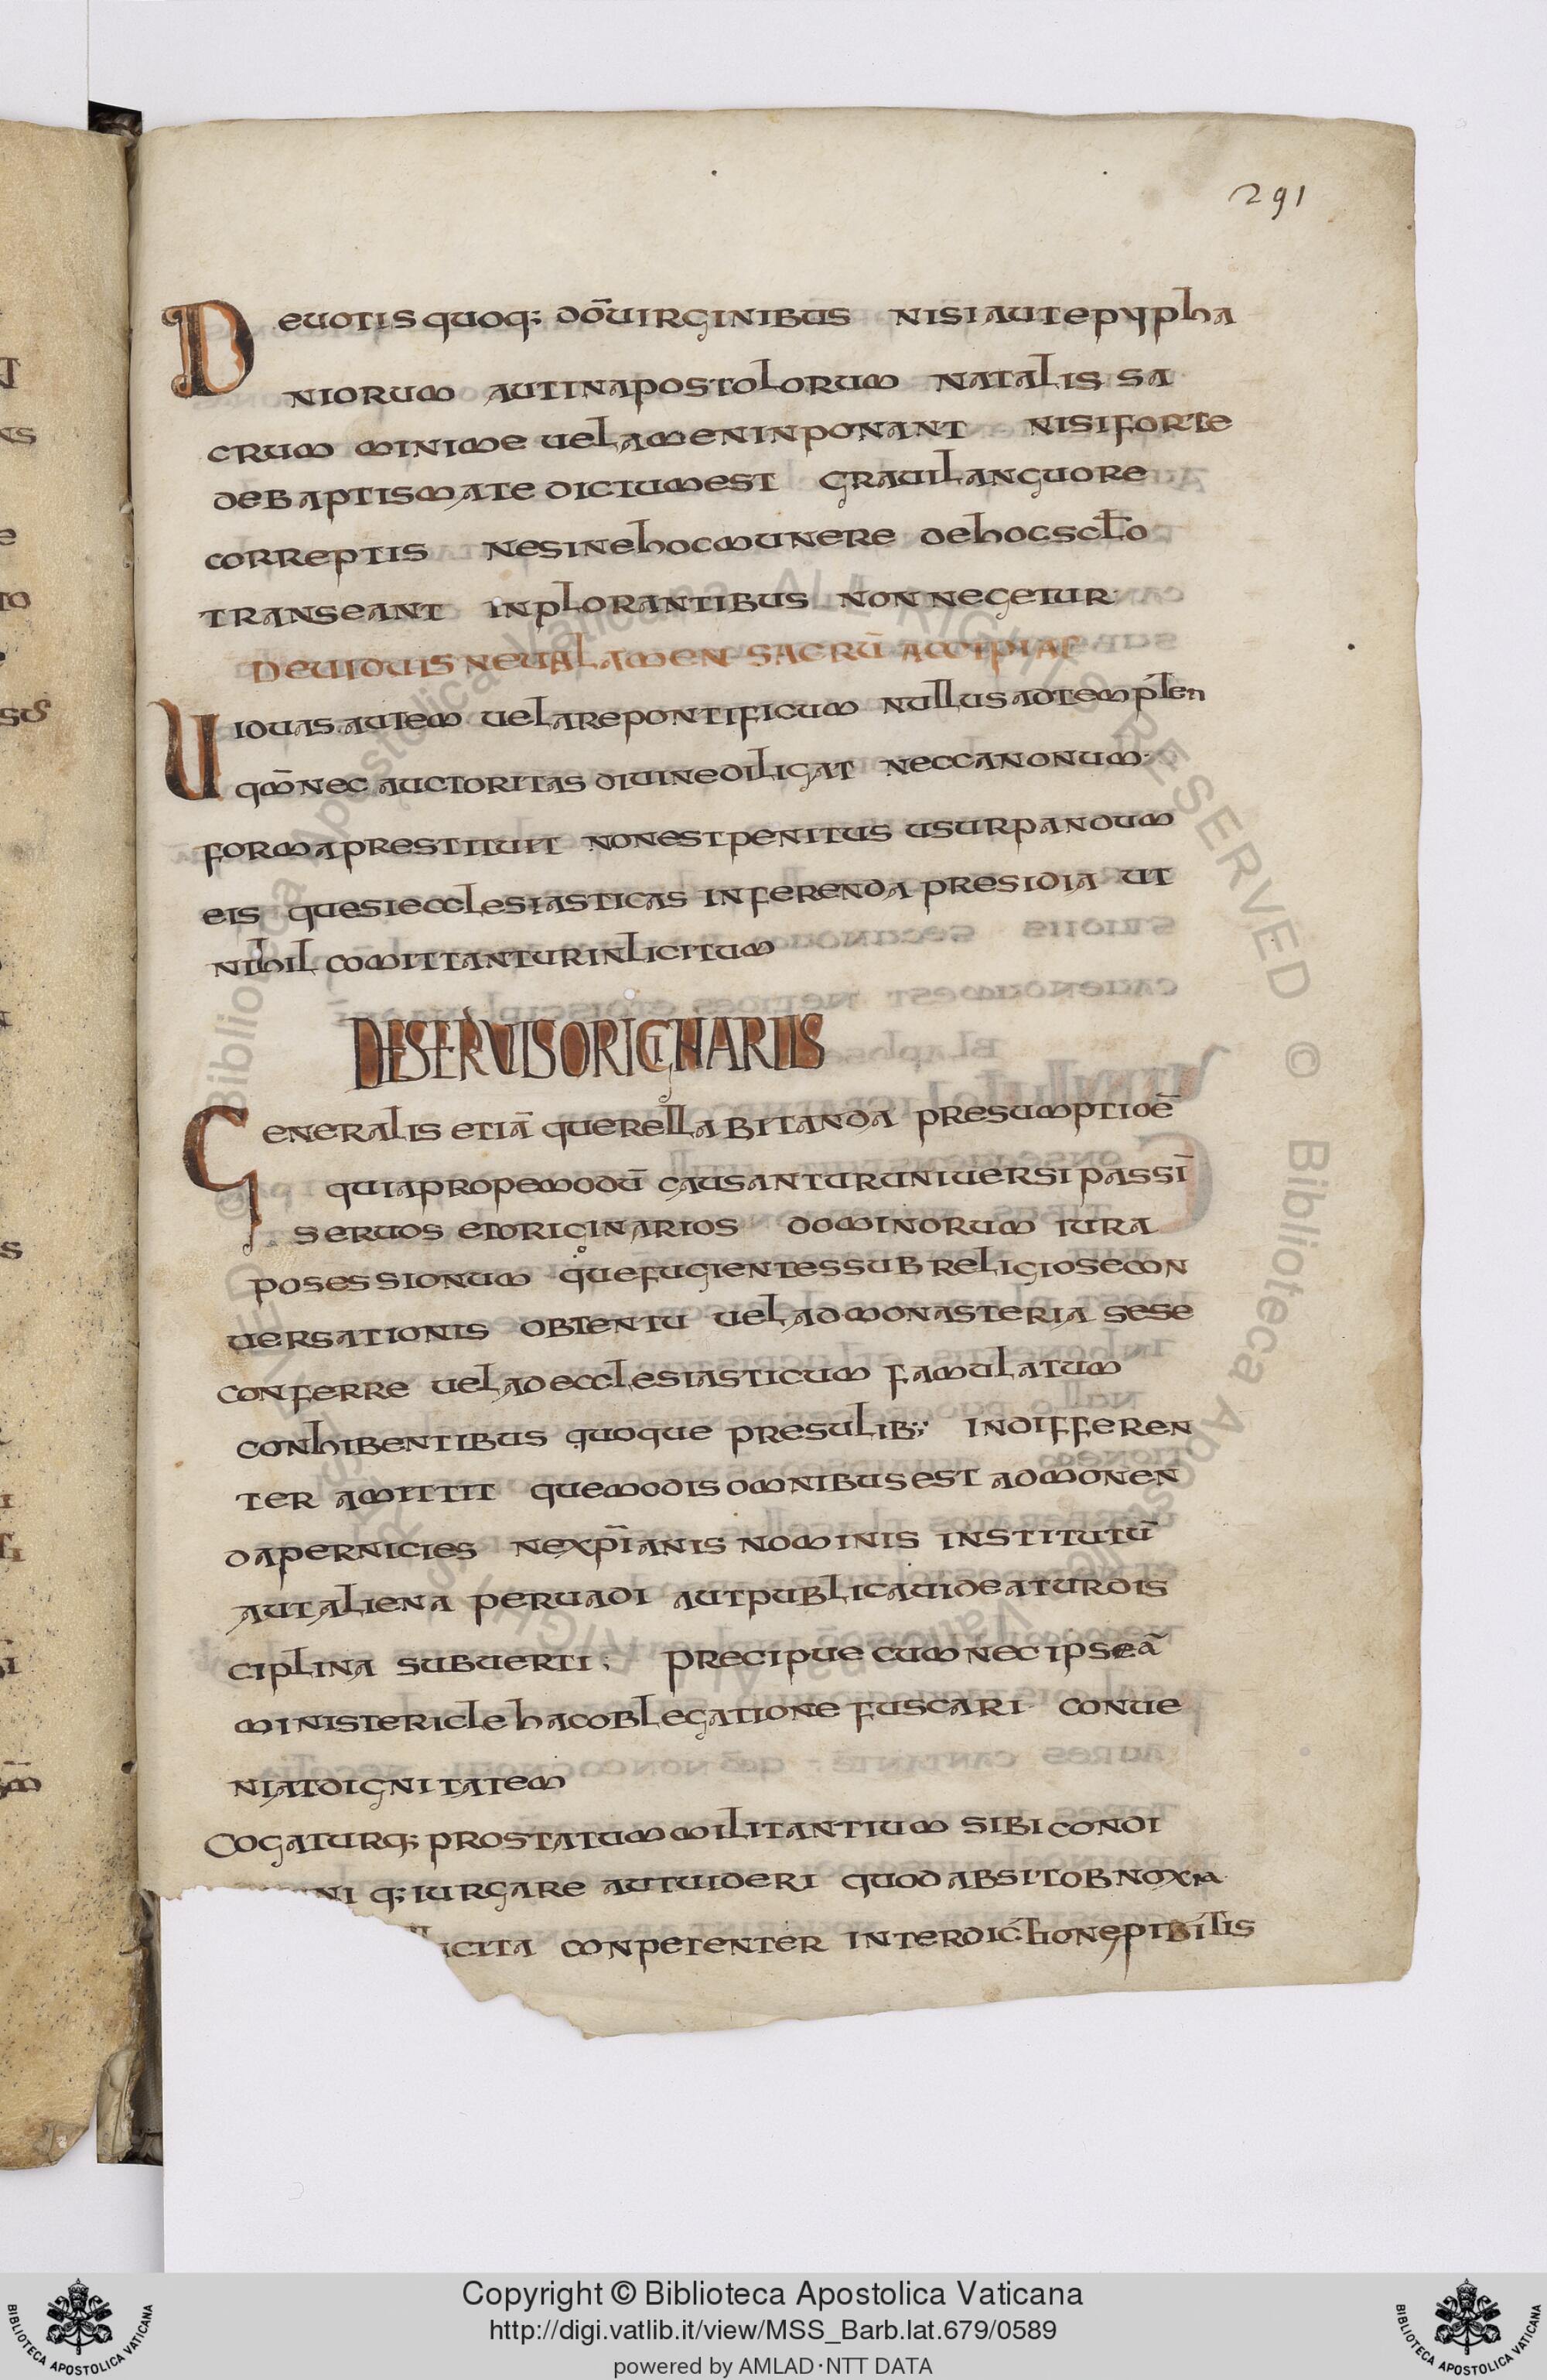 291
Deuotis quoq; dō uirginibus nisi aut epypha
niorum aut in apostolorum natalis sa
crum minime uelamen inponant nisi forte
de baptismate dictum est graui languore
correptis ne sine hoc munere de hoc scło
transeant inplorantibus non negetur
De uiduis ne ualamen sacrū accipiat
Uiduas autem uelare pontificum nullus adtemplen
qm̄ nec auctoritas diuine diligat nec canonum
forma prestituit non est penitus usurpandum
eis quesi ecclesiasticas inferenda presidia ut
nihil comittantur inlicitum
DE SERVIS ORIGINARIIS
Generalis etiā querella bitanda presumptioē
quia propemodū causantur uniuersi passī
seruos et originarios dominorum iura
posessionum que fugientes sub religiose con
uersationis obtentu uel ad monasteria sese
conferre uel ad ecclesiasticum famulatum
conhibentibus quoque presulib; indifferen
ter amittit quemodis omnibus est admonen
da pernicies ne xp̄ianis nominis institutū
aut aliena peruadi aut publica uideatur dis
ciplina subuerti; precipue cum nec ipseā
ministericle hac oblegatione fuscari conue
niat dignitatem
Cogaturq; pro statum militantium sibi condi
ni q; iurgare aut uideri quod absit obnoxia
icita conpetenter interdictione pibitis
Copyright © Biblioteca Apostolica Vaticana
http://digi.vatlib.it/view/MSS_Barb.lat.679/0589
powered by AMLAD·NTT DATA